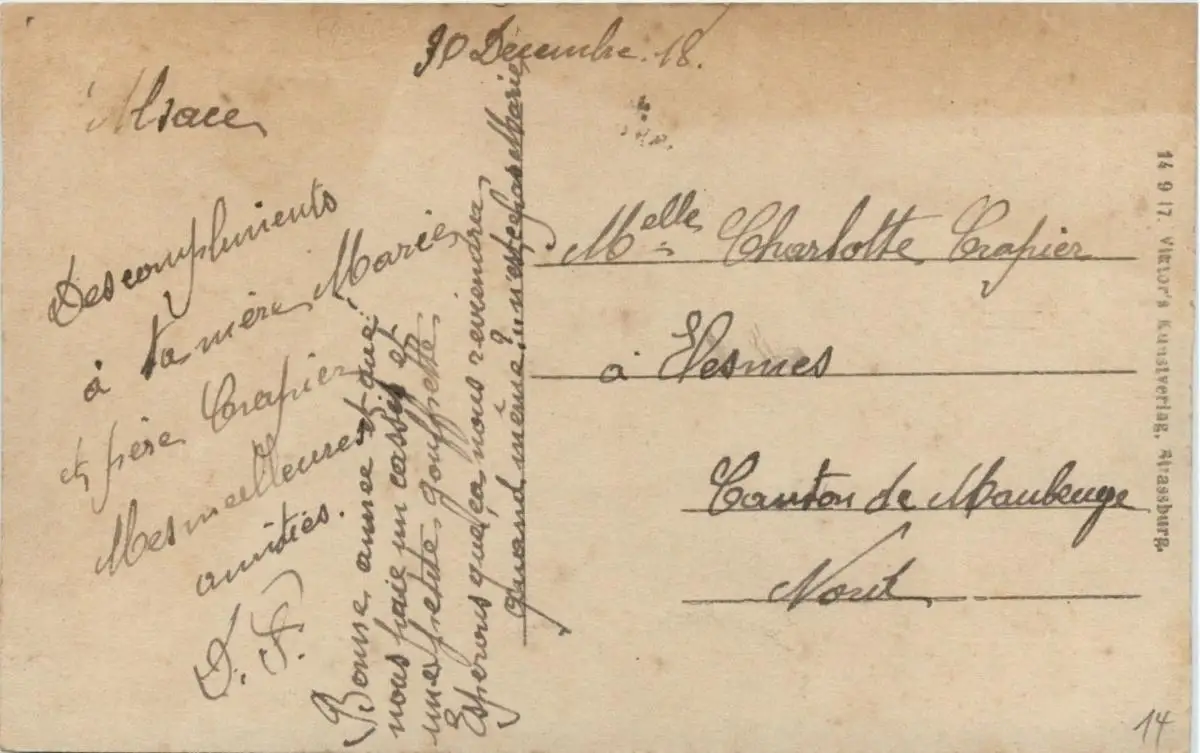 30 Décembre. 18.
Alsace
Des compliments
à ta mère Marie
et père Crapier
Mes meilleures
amitiés.
D. F.
Bonne année et que
nous paie un cassis et
une petite gouffrette
Espérons que ça nous reviendra
quand même, n'est-ce pas Marie
?
Melle Charlotte Crapier
à Elesmes
Canton de Maubeuge
Nord
14 9 17. Viktor's Kunstverlag, Strassburg.
14